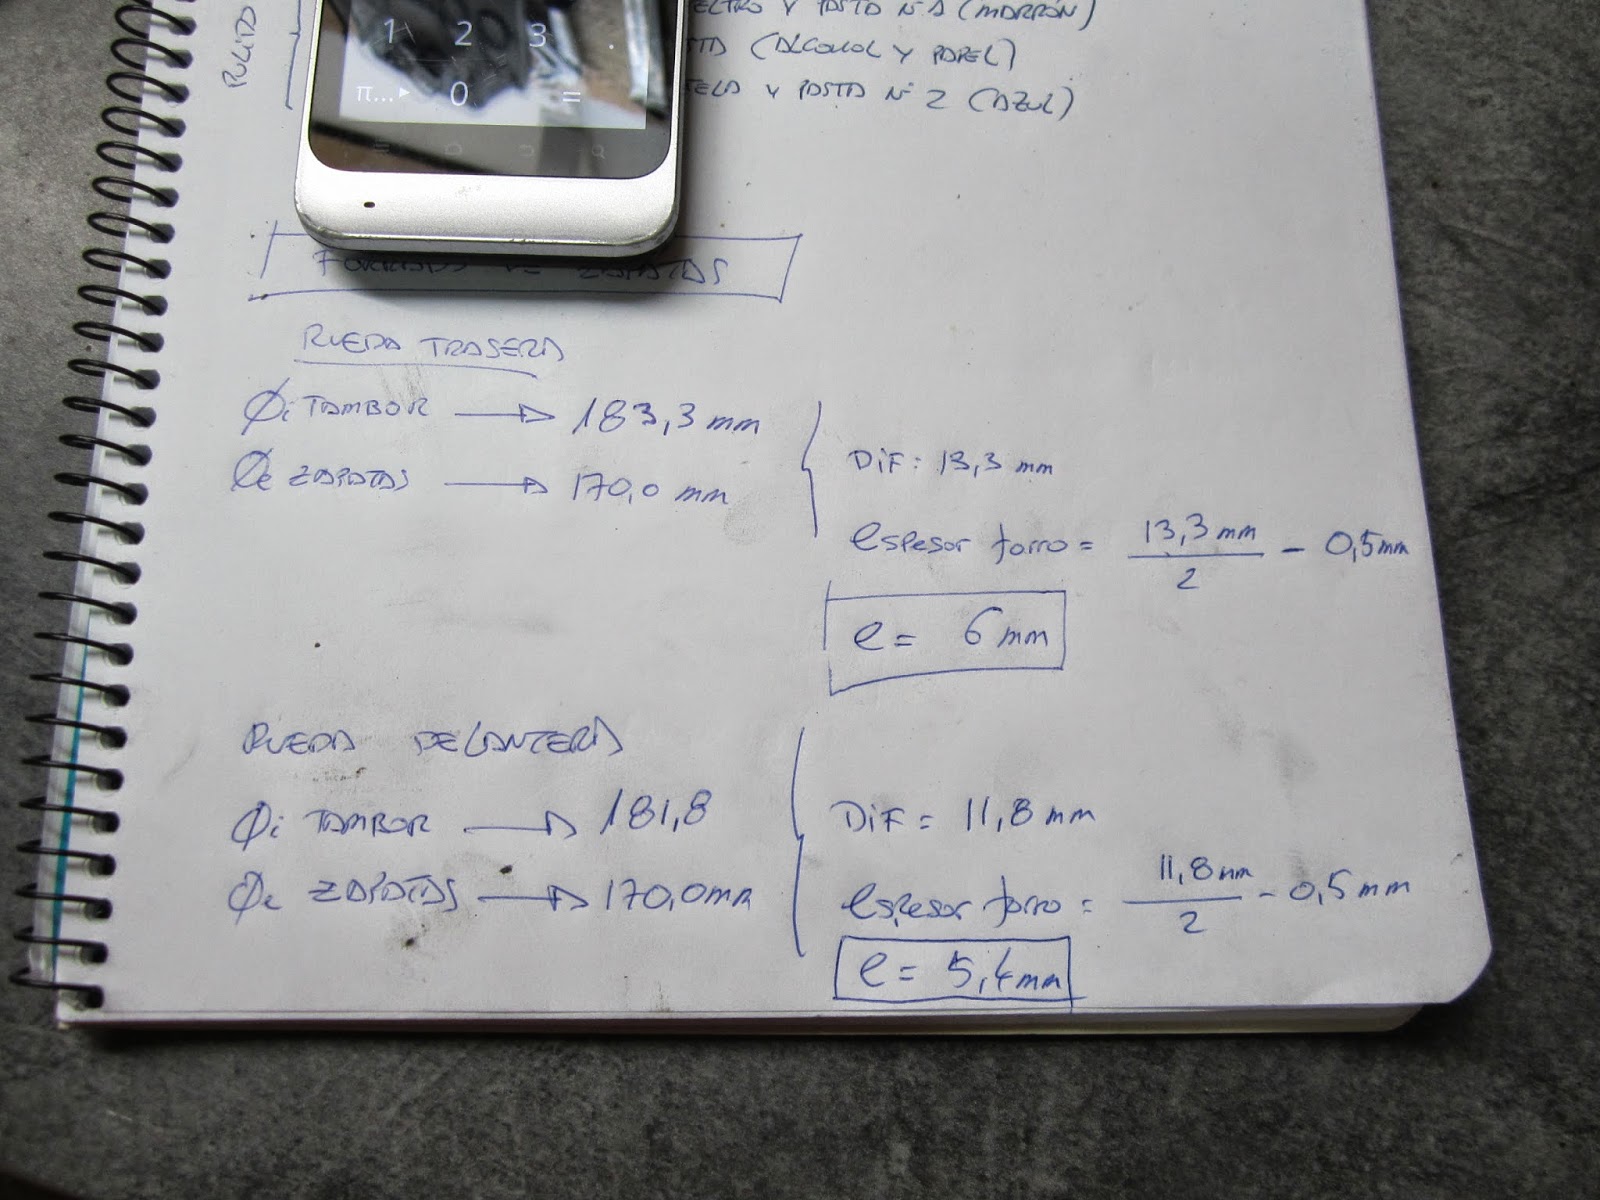 PULIDO
FIELTRO Y PASTA Nº 1 (MARRÓN)
(ALCOHOL Y PAPEL)
TELA Y PASTA Nº 2 (AZUL)
1 2 3 .
π... 0 =
ZAPATAS
RUEDA TRASERA
Øi TAMBOR → 183,3 mm
Øe ZAPATAS → 170,0 mm
DIF: 13,3 mm
espesor forro = 13,3 mm / 2 - 0,5 mm
e = 6 mm
RUEDA DELANTERA
Øi TAMBOR → 181,8
Øe ZAPATAS → 170,0 mm
DIF = 11,8 mm
espesor forro = 11,8 mm / 2 - 0,5 mm
e = 5,4 mm